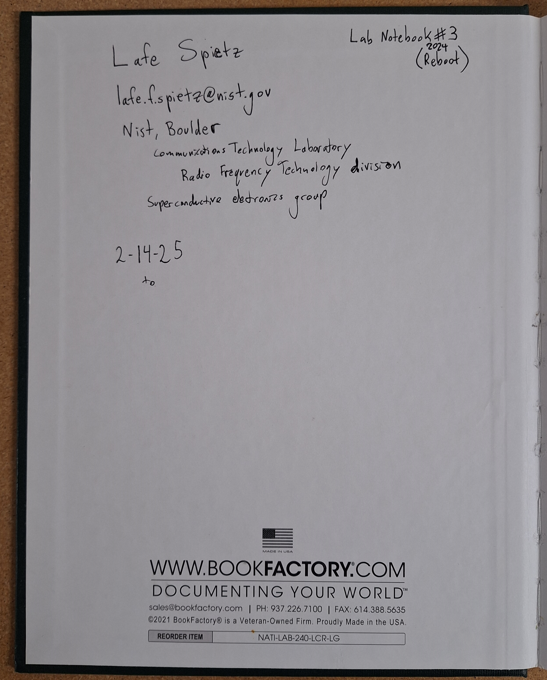 Lafe Spietz
Lab Notebook #3
2024
(Reboot)
lafe.f.spietz@nist.gov
Nist, Boulder
Communications Technology Laboratory
Radio Frequency Technology division
Superconductive electronics group
2-14-25
to
MADE IN USA
WWW.BOOKFACTORY.COM
DOCUMENTING YOUR WORLD™
sales@bookfactory.com | PH: 937.226.7100 | FAX: 614.388.5635
©2021 BookFactory® is a Veteran-Owned Firm. Proudly Made in the USA.
REORDER ITEM NATI-LAB-240-LCR-LG